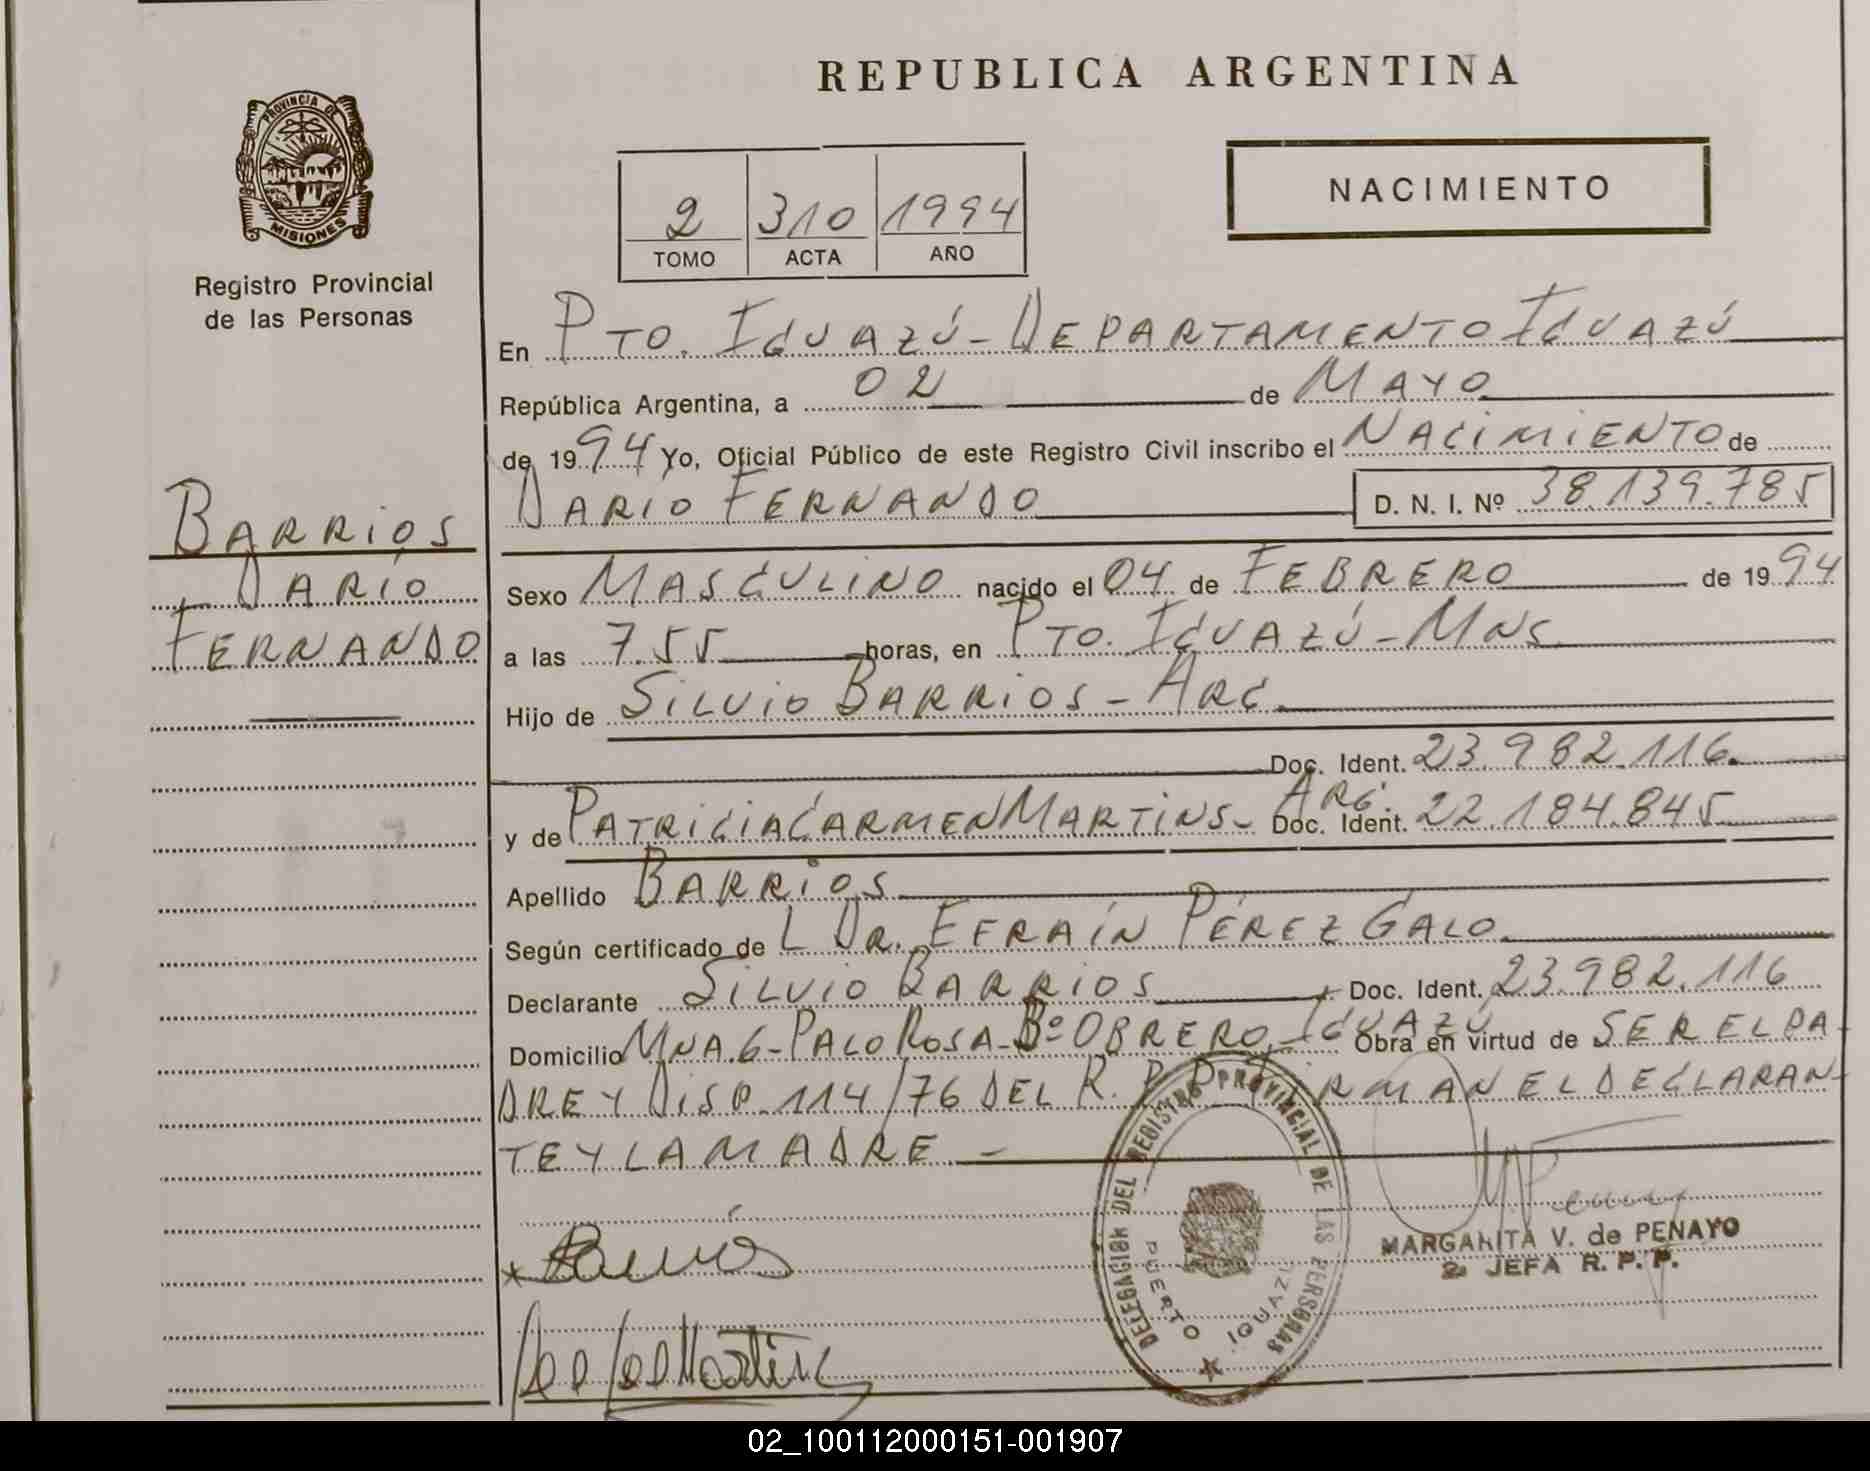 REPUBLICA ARGENTINA
PROVINCIA DE
MISIONES
Registro Provincial
de las Personas
NACIMIENTO
2 310 1994
TOMO ACTA AÑO
En PTO. IGUAZÚ - DEPARTAMENTO IGUAZÚ
República Argentina, a 02 de MAYO
de 1994 Yo, Oficial Público de este Registro Civil inscribo el NACIMIENTO de
DARIO FERNANDO D. N. I. Nº 38.139.785
BARRIOS
DARIO
FERNANDO
Sexo MASCULINO nacido el 04 de FEBRERO de 1994
a las 7.55 horas, en PTO. IGUAZÚ - MNS.
Hijo de SILVIO BARRIOS - ARG.
Doc. Ident. 23.982.116.
y de PATRICIA CARMEN MARTINS - ARG. Doc. Ident. 22.184.845
Apellido BARRIOS
Según certificado de L DR. EFRAÍN PÉREZ GALO
Declarante SILVIO BARRIOS Doc. Ident. 23.982.116
Domicilio MNA.6 - PALO ROSA - Bº OBRERO - IGUAZÚ Obra en virtud de SER EL PA-
DRE Y DISP. 114/76 DEL R. P. P. FIRMAN EL DECLARAN-
TE Y LA MADRE. -
DELEGACION DEL REGISTRO PROVINCIAL DE LAS PERSONAS
PUERTO IGUAZU
MARGARITA V. de PENAYO
2ª JEFA R. P. P.
Barrios
02_100112000151-001907